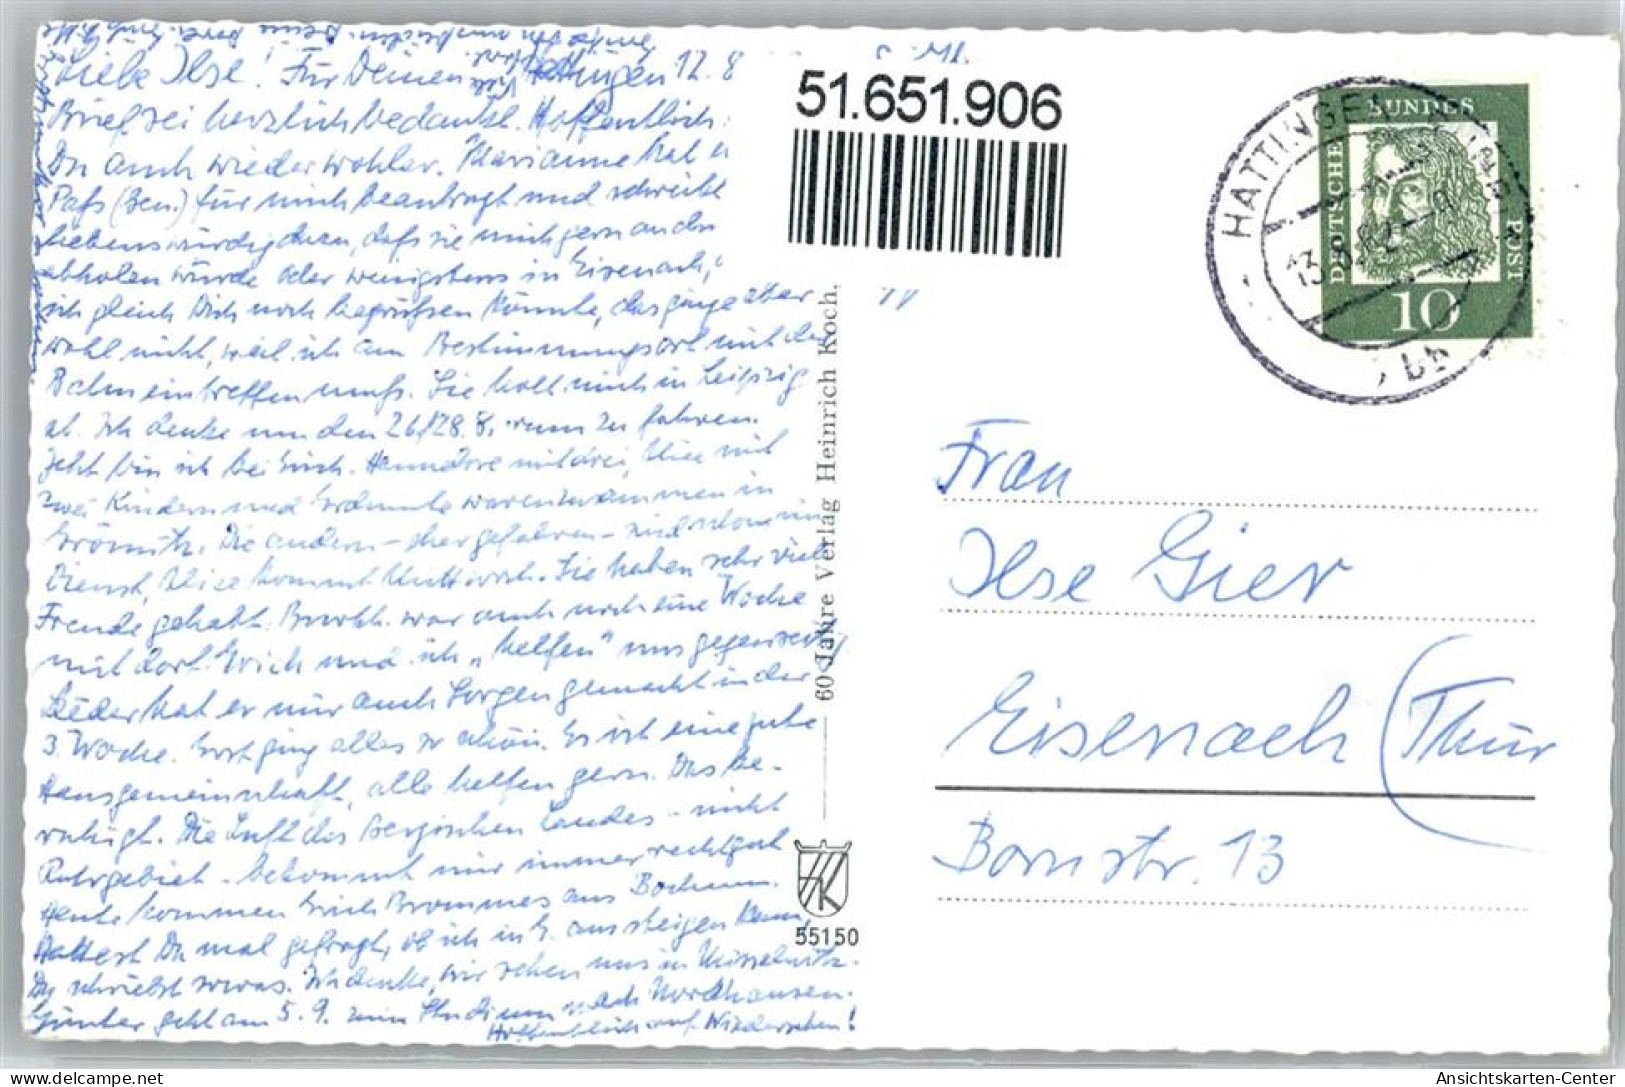 Liebe Ilse! Für Deinen Hattingen 12. 8
Brief sei herzlich bedankt. Hoffentlich
Du auch wieder wohler. Marianne hat
Paß (Gen.) für mich beantragt und schreibt
liebenswürdig dazu, daß sie mich gern an der
abholen würde oder wenigstens in Eisenach,
ich gleich Dich noch begrüßen könnte, das ginge aber
wohl nicht, weil ich am Bestimmungsort mit der
Bahn eintreffen muß. Sie holt mich in Leipzig
ab. Ich denke um den 26/28. 8. rum zu fahren.
Jetzt bin ich bei Erich. Hannelore mit drei, mit
zwei Kindern und waren zusammen in
Grömitz. Die andern - eher gefahren - sind schon im
Dienst, kommt Mittwoch. Sie haben sehr viel
Freude gehabt. war auch noch eine Woche
mit dort. Erich und ich „helfen" uns gegenseitig
Leider hat er mir auch Sorgen gemacht in der
3. Woche. Erst ging alles so schön. Es ist eine gute
Hausgemeinschaft, alle helfen gern. Das be-
ruhigt. Die Luft des Bergischen Landes - nicht
Ruhrgebiet - bekommt mir immer recht gut
Heute kommen Erich Brommes aus Bochum.
Hattest Du mal gefragt, ob ich in G. aussteigen kann,
Du schriebst sowas. Ich denke, wir sehen uns in
Günter geht am 5. 9. zum Studium nach Nordhausen.
Hoffentlich auf Wiedersehen!
51.651.906
60 Jahre Verlag Heinrich Koch,
55150
HATTINGEN
13.8.62
DEUTSCHE
BUNDES
POST
10
Frau
Ilse Gier
Eisenach (Thür
Bornstr. 13
delcampe.net
Ansichtskarten-Center